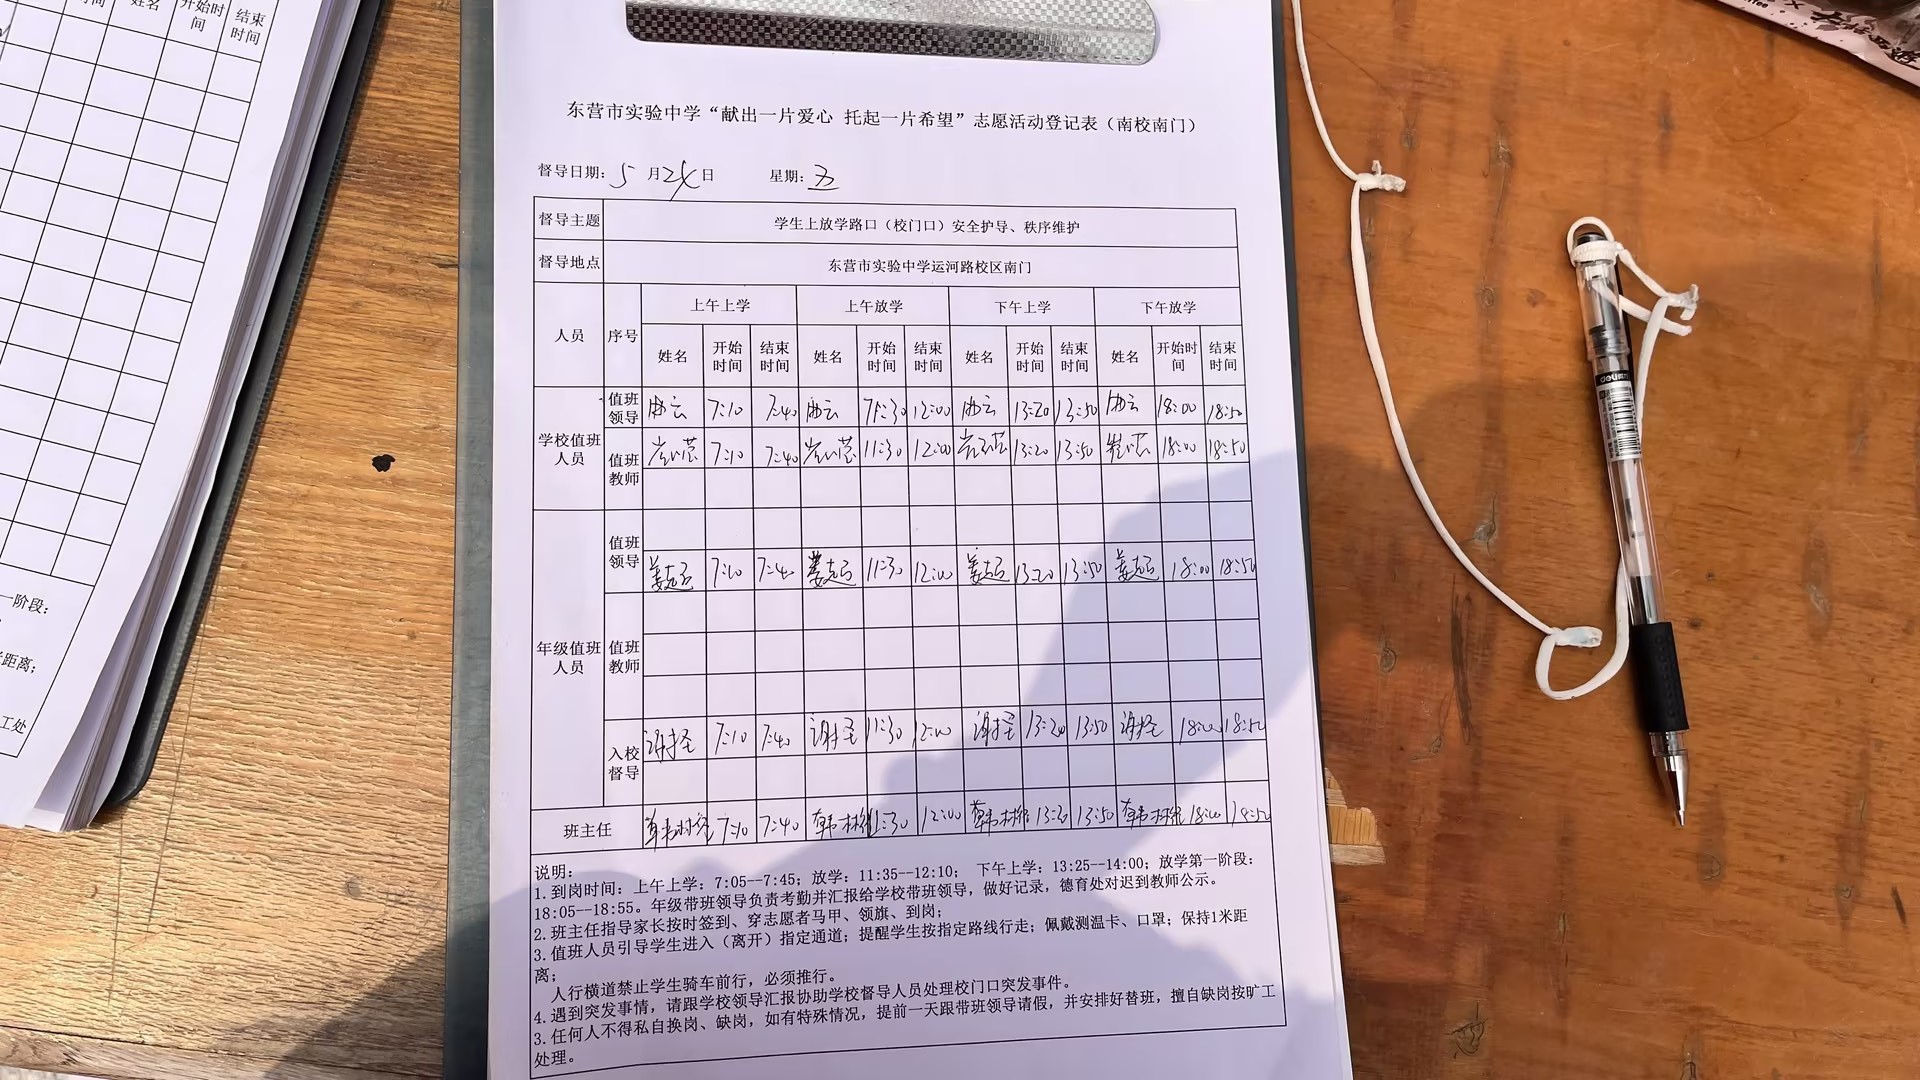 姓名 开始时间 结束时间
一阶段：
距离；
工处
东营市实验中学“献出一片爱心 托起一片希望”志愿活动登记表（南校南门）
督导日期：5 月24日 星期：五
督导主题 学生上放学路口（校门口）安全护导、秩序维护
督导地点 东营市实验中学运河路校区南门
人员 序号 上午上学 上午放学 下午上学 下午放学
姓名 开始时间 结束时间 姓名 开始时间 结束时间 姓名 开始时间 结束时间 姓名 开始时间 结束时间
学校值班人员
值班领导 7:10 7:40 12:00 13:20 13:50 18:00 18:50
值班教师 7:10 7:40 11:30 12:00 13:20 13:50 18:00 18:50
年级值班人员
值班领导 姜志弓 7:10 7:40 姜志弓 11:30 12:00 姜志弓 13:20 13:50 姜志弓 18:00 18:50
值班教师
入校督导 7:10 7:40 11:30 12:00 13:20 13:50 18:00 18:50
班主任 7:10 7:40 11:30 12:00 13:20 13:50 18:00 18:50
说明：
1.到岗时间：上午上学：7:05--7:45；放学：11:35--12:10； 下午上学：13:25--14:00；放学第一阶段：
18:05--18:55。年级带班领导负责考勤并汇报给学校带班领导，做好记录，德育处对迟到教师公示。
2.班主任指导家长按时签到、穿志愿者马甲、领旗、到岗；
3.值班人员引导学生进入（离开）指定通道；提醒学生按指定路线行走；佩戴测温卡、口罩；保持1米距
离；
人行横道禁止学生骑车前行，必须推行。
4.遇到突发事情，请跟学校领导汇报协助学校督导人员处理校门口突发事件。
3.任何人不得私自换岗、缺岗，如有特殊情况，提前一天跟带班领导请假，并安排好替班，擅自缺岗按旷工
处理。
deli